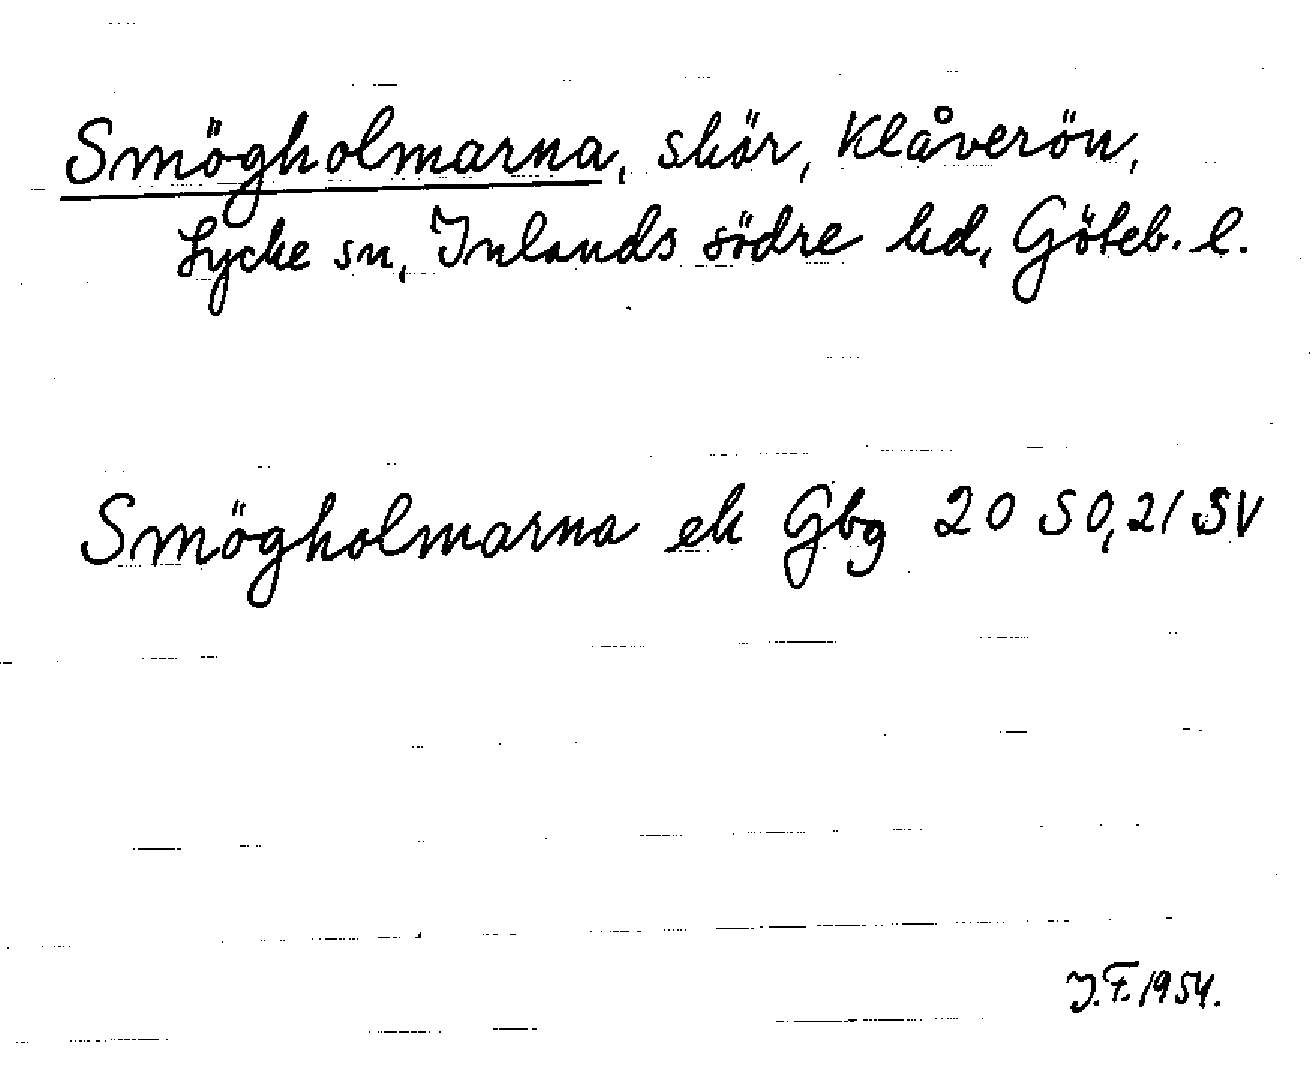 Smögholmarna, skär, Klåverön,
Lycke sn, Inlands södre hd, Göteb. l.
Smögholmarna ek Gbg 20 SO, 21 SV
J.F. 1954.